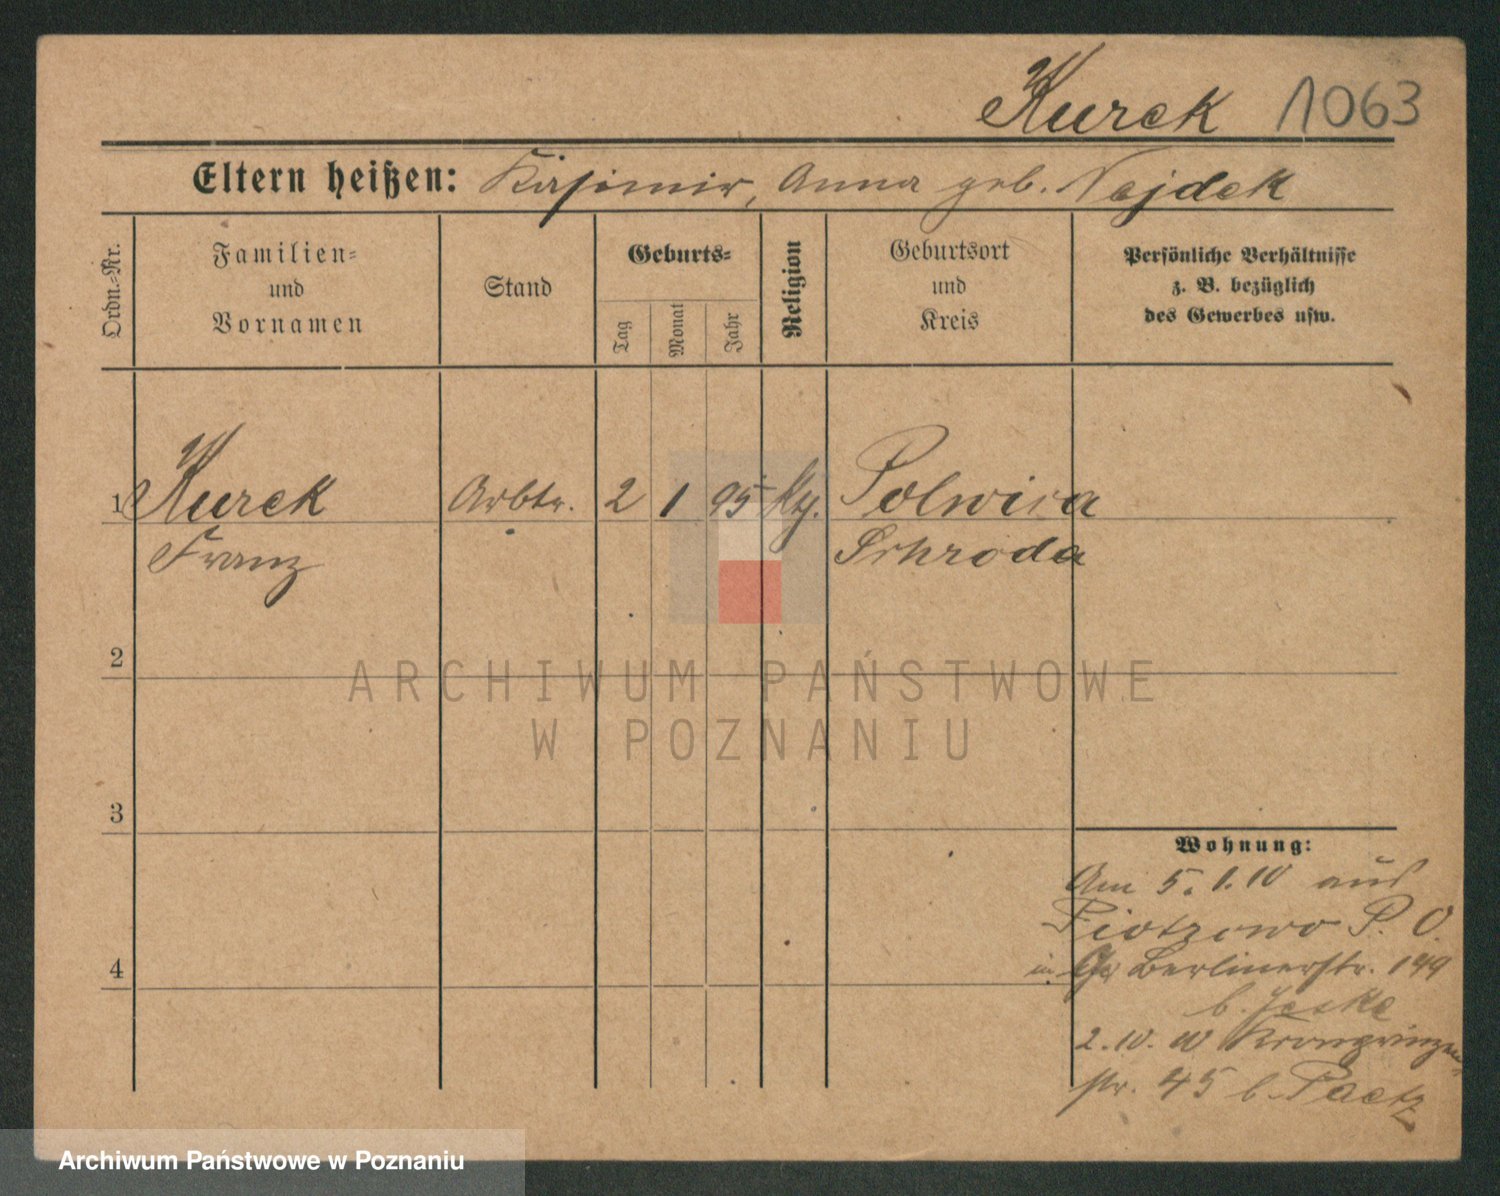 Kurek 1063
Eltern heißen: Kasimir, Anna geb. Najdek
Ordn.-Nr.
Familien-
und
Vornamen
Stand
Geburts-
Tag
Monat
Jahr
Religion
Geburtsort
und
Kreis
Persönliche Verhältnisse
z. B. bezüglich
des Gewerbes usw.
1 Kurek Arbtr. 2 1 95 Kth. Polwica
Franz Schroda
2
3
4
Wohnung:
Am 5.1.10 aus
Piotrowo P. O.
in Berlinerstr. 149
b. Jeske
2.10. Kronprinzen
str. 45 b. Paetz
ARCHIWUM PAŃSTWOWE
W POZNANIU
Archiwum Państwowe w Poznaniu